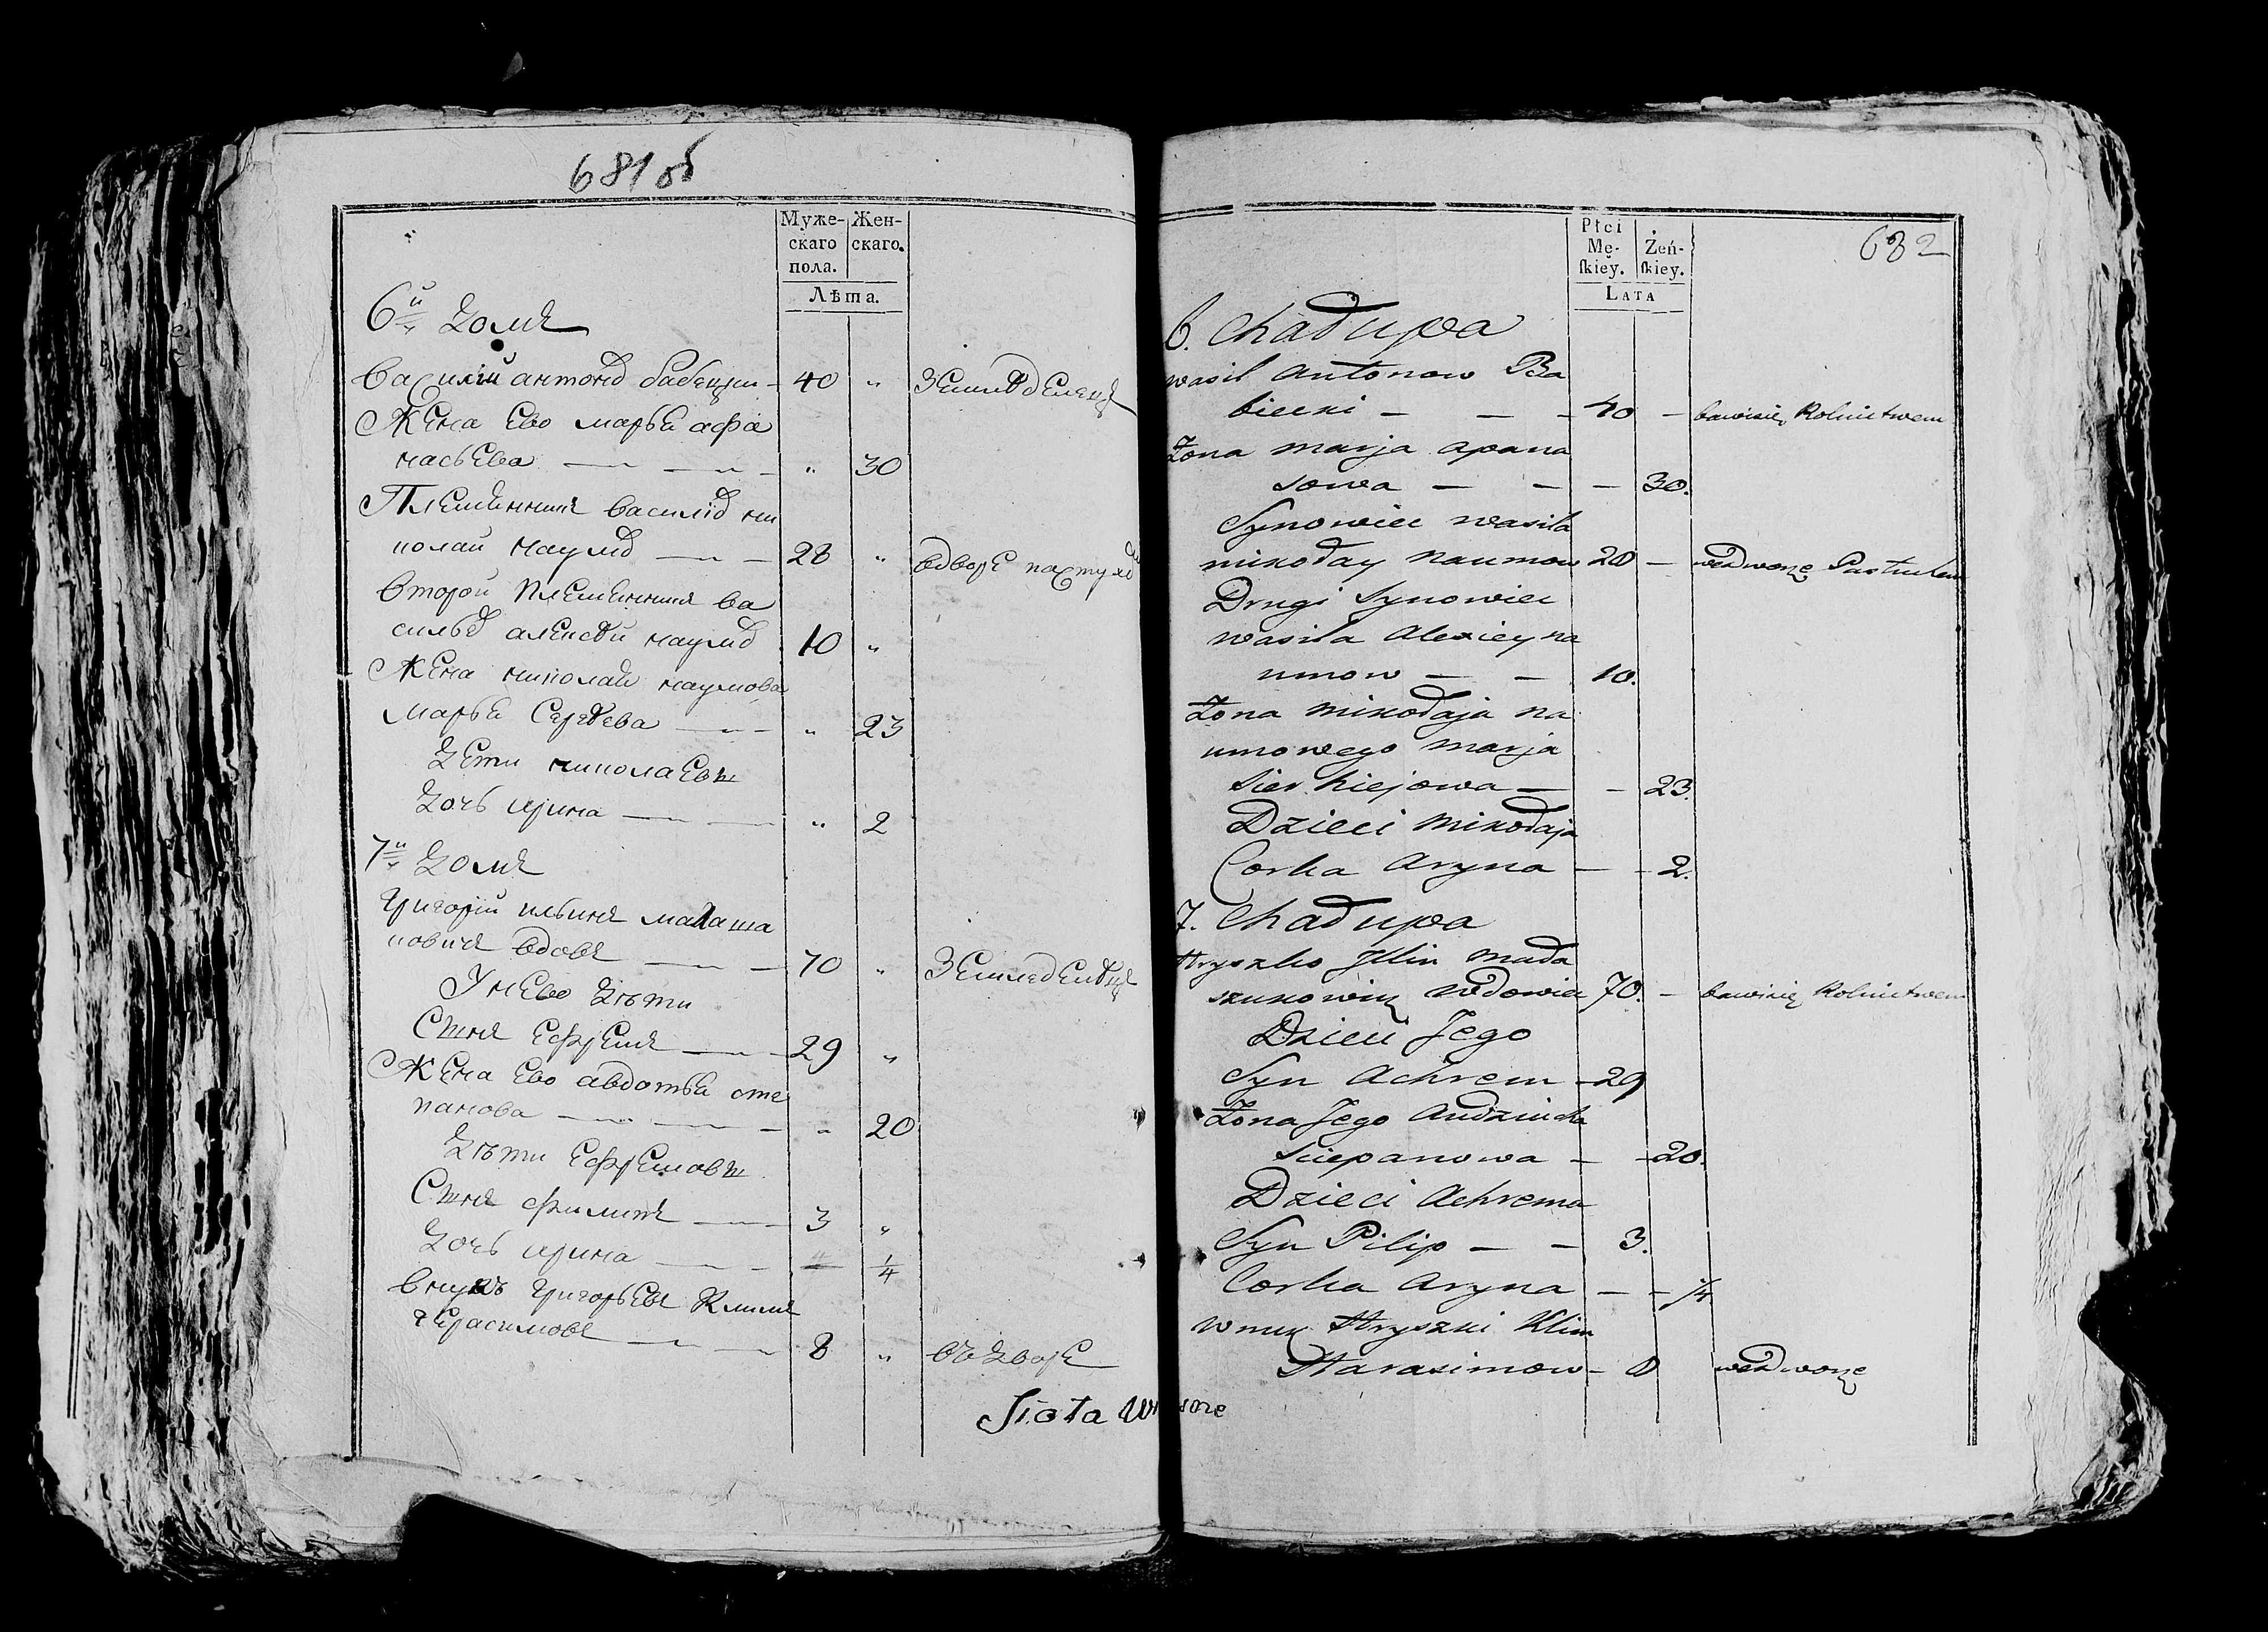 681 об
Муже-
скаго
пола.
Жен-
скаго.
Лѣта.
6й домъ
Василiй антоновъ бабецки 40 „ Земледелецъ
Жена Ево марья афа
насьева „ 30
Племянникъ василiевъ ни
колай наумовъ 28 „ вдворе пастухъ
второй племянникъ ва
сильевъ алексѣй наумовъ 10 „
Жена николая наумова
марья Сергѣева „ 23
Дети николаевы
дочь ирина „ 2
7й домъ
григорiй ильинъ малаша
новичъ вдовъ 70 „ Земледелецъ
У нево дѣти
Сынъ Ефремъ 29 „
Жена Ево авдотья сте
панова „ 20
дѣти Ефремовы
Сынъ филипъ 3 „
дочь ирина 1/4
внукъ григорьевъ климъ
герасимовъ 8 „ въ дворе
682
Płci
Mę-
ſkiey.
Żeń-
ſkiey.
LATA
6. Chałupa
wasil antonow Ba
biecki — — — 40 — bawisię Rolnictwem
Żona marja apana
sowa — — — 30.
Synowiec wasila
mikołay naumow 28 — wedworzę Pastuchem
Drugi Synowiec
wasila Alexiey na
umow — — 10.
Żona mikołaja na
umowego marja
sierhiejowa — — 23.
Dzieci mikołaja
Corka Aryna — — 2.
7. Chałupa
Hryszko Jllin mała
szukowicz wdowiec 70. — bawisię Rolnictwem
Dzieci Jego
Syn Achrem — 29
Żona Jego Audziucha
sciepanowa — — 20.
Dzieci Achrema
Syn Pilip — — 3.
Corka Aryna — — 1/4
wnuk Hryszki Klim
Harasimow — 8 wedworzę